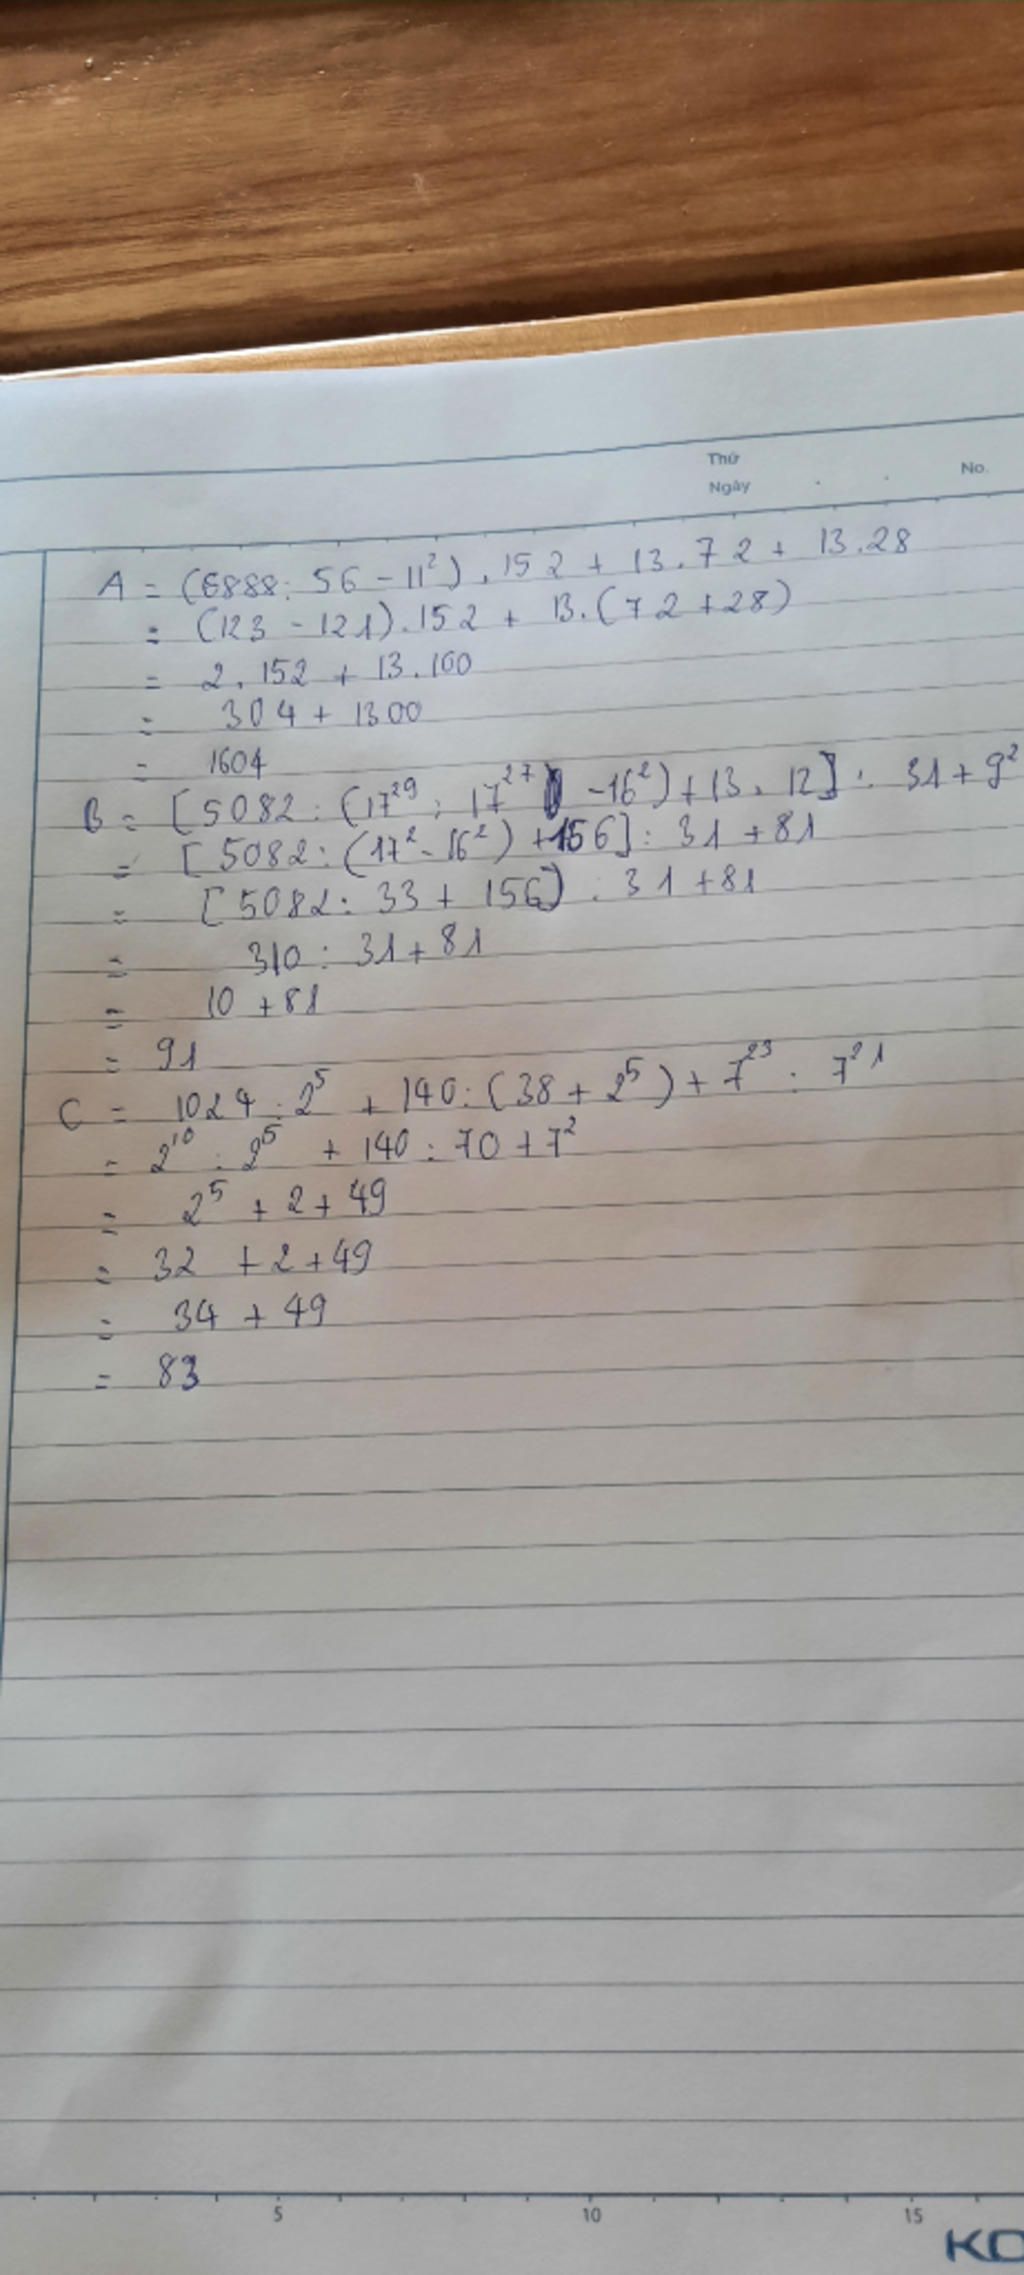 Thứ
Ngày
No.
A = (6888: 56 - 11²) . 152 + 13 . 72 + 13.28
= (123 - 121).152 + 13.(72+28)
= 2.152 + 13.100
= 304 + 1300
= 1604
B = [5082 : (17²⁹ : 17²⁷ - 16²) + 13 . 12] : 31 + 9²
= [5082 : (17² - 16²) + 156] : 31 + 81
= [5082 : 33 + 156] : 31 + 81
= 310 : 31 + 81
= 10 + 81
= 91
C = 1024 : 2⁵ + 140 : (38 + 2⁵) + 7²³ : 7²¹
= 2¹⁰ : 2⁵ + 140 : 70 + 7²
= 2⁵ + 2 + 49
= 32 + 2 + 49
= 34 + 49
= 83
5 10 15